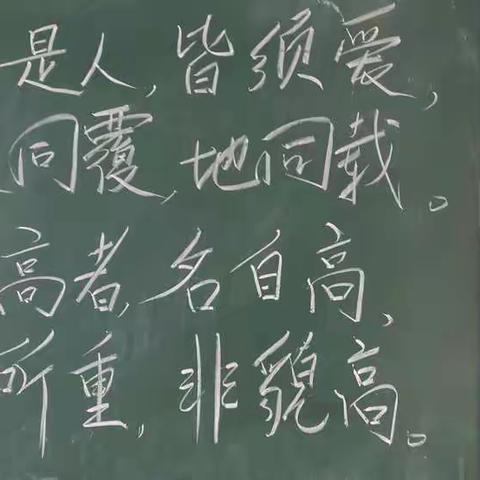 是人,皆须爱,
同覆,地同载。
高者,名自高,
所重,非貌高。